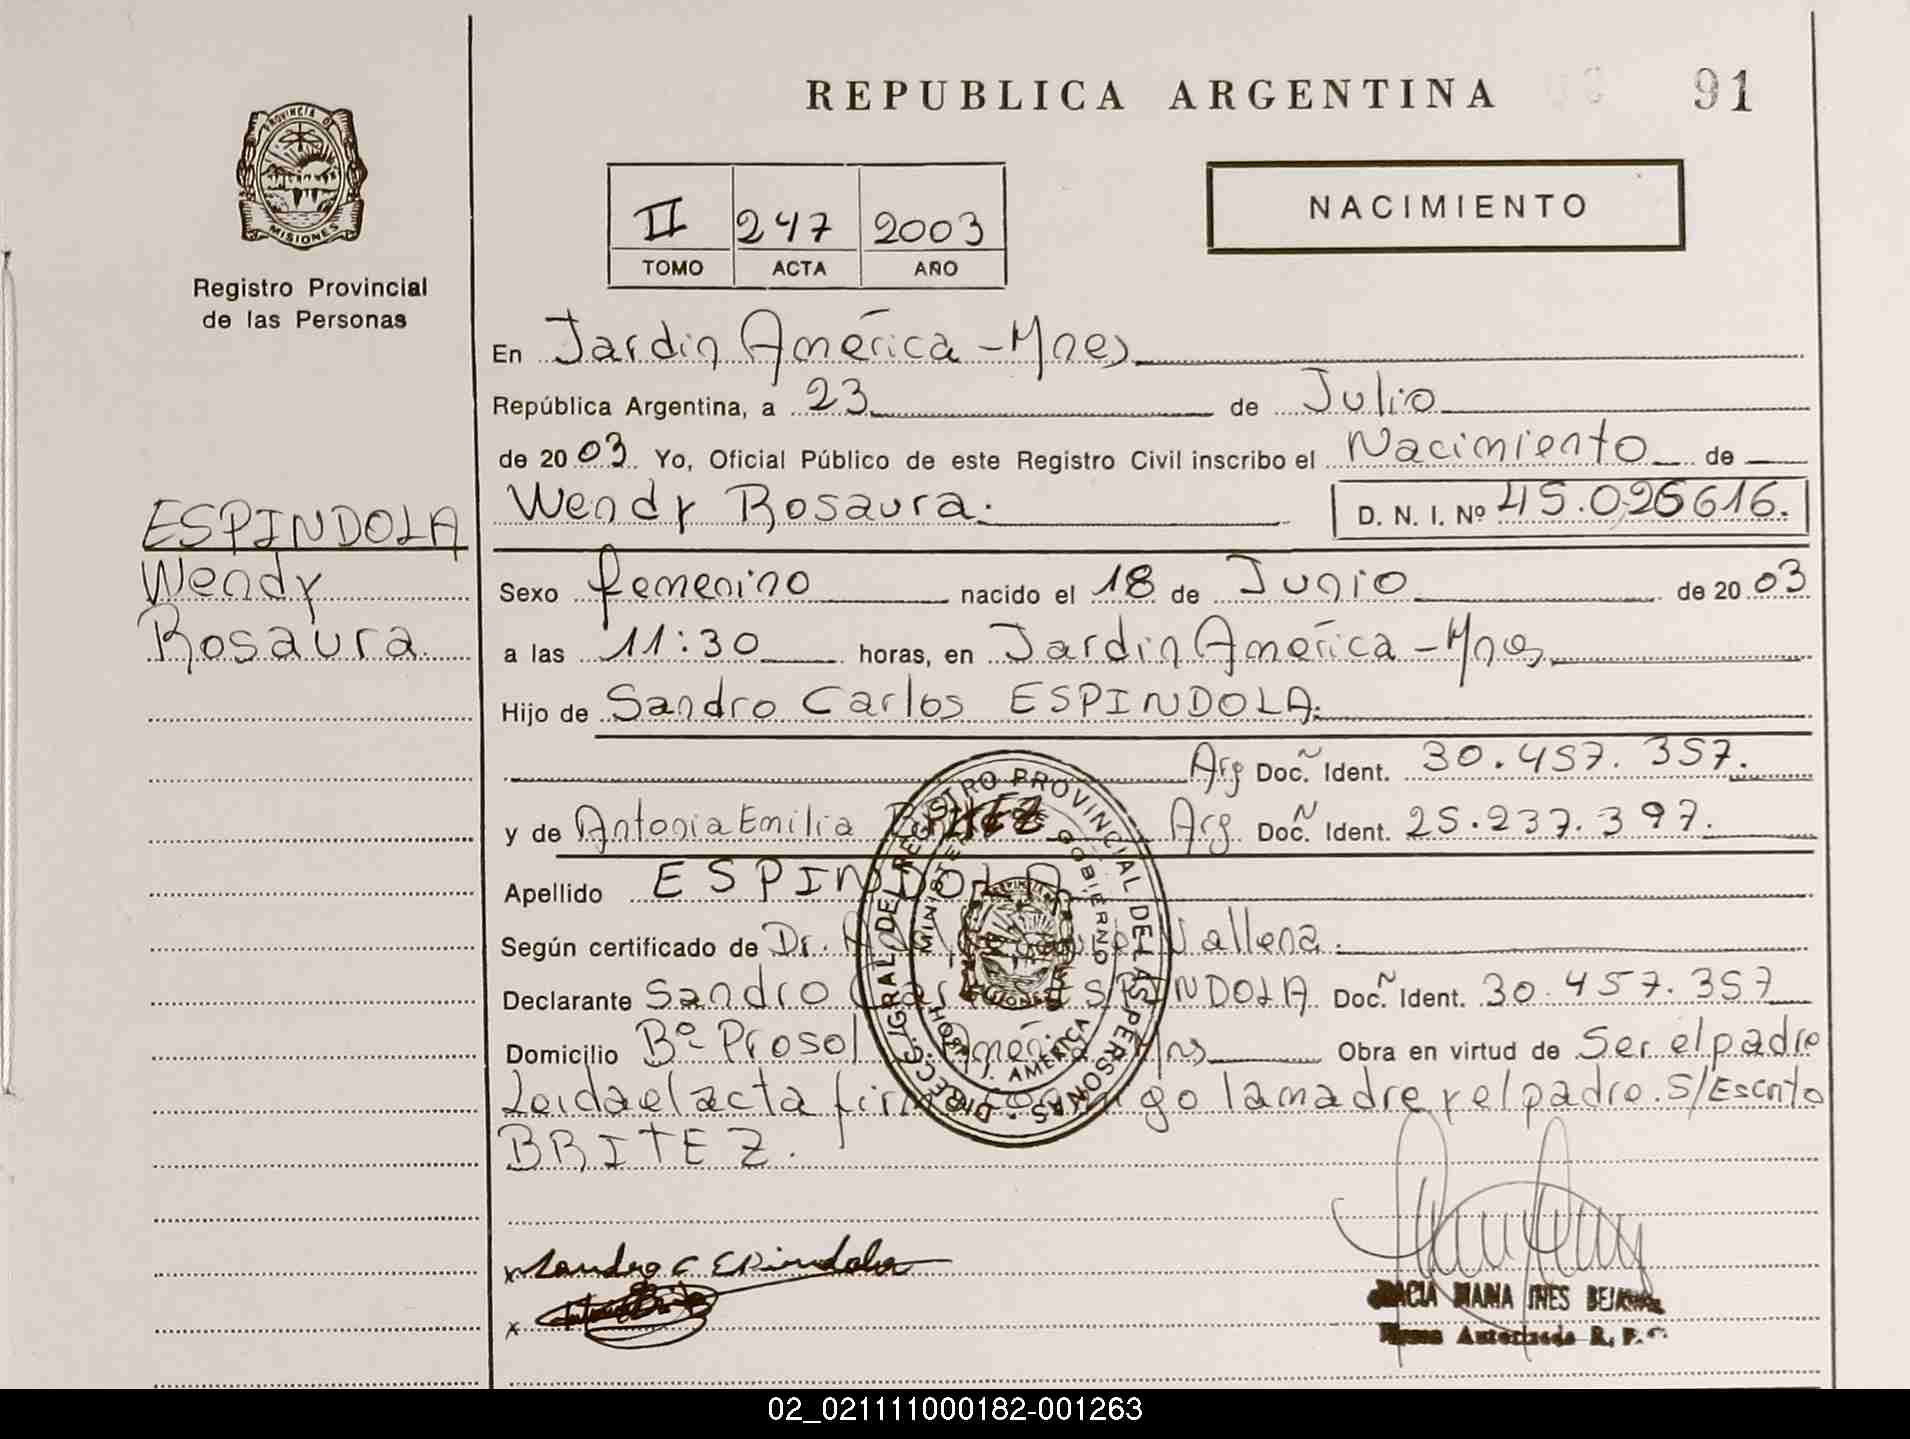 REPUBLICA ARGENTINA
91
PROVINCIA DE
MISIONES
Registro Provincial
de las Personas
II 247 2003
TOMO ACTA AÑO
NACIMIENTO
En Jardin América - Mnes
República Argentina, a 23 de Julio
de 2003. Yo, Oficial Público de este Registro Civil inscribo el Nacimiento de
Wendy Rosaura. D. N. I. Nº 45.026616.
ESPINDOLA
Wendy
Rosaura.
Sexo femenino nacido el 18 de Junio de 2003
a las 11:30 horas, en Jardin América - Mnes
Hijo de Sandro Carlos ESPINDOLA.
Arg Doc. Ident. 30.457.357.
y de Antonia Emilia Arg. Doc. Ident. 25.237.397.
Apellido ESPINDOLA
Según certificado de Dr. Vallena.
Declarante Sandro ESPINDOLA Doc. Ident. 30.457.357
Domicilio Bº Prosol América Mns Obra en virtud de Ser el padre
Leida el acta la madre y el padre. S/Escrito
BRITEZ.
DIRECC. GRAL DEL REGISTRO PROVINCIAL DE LAS PERSONAS
MINISTE GOBIERNO
J. AMERICA
x Sandro C Espindola
x
MARIA INES
Autorizada R. P.
02_021111000182-001263